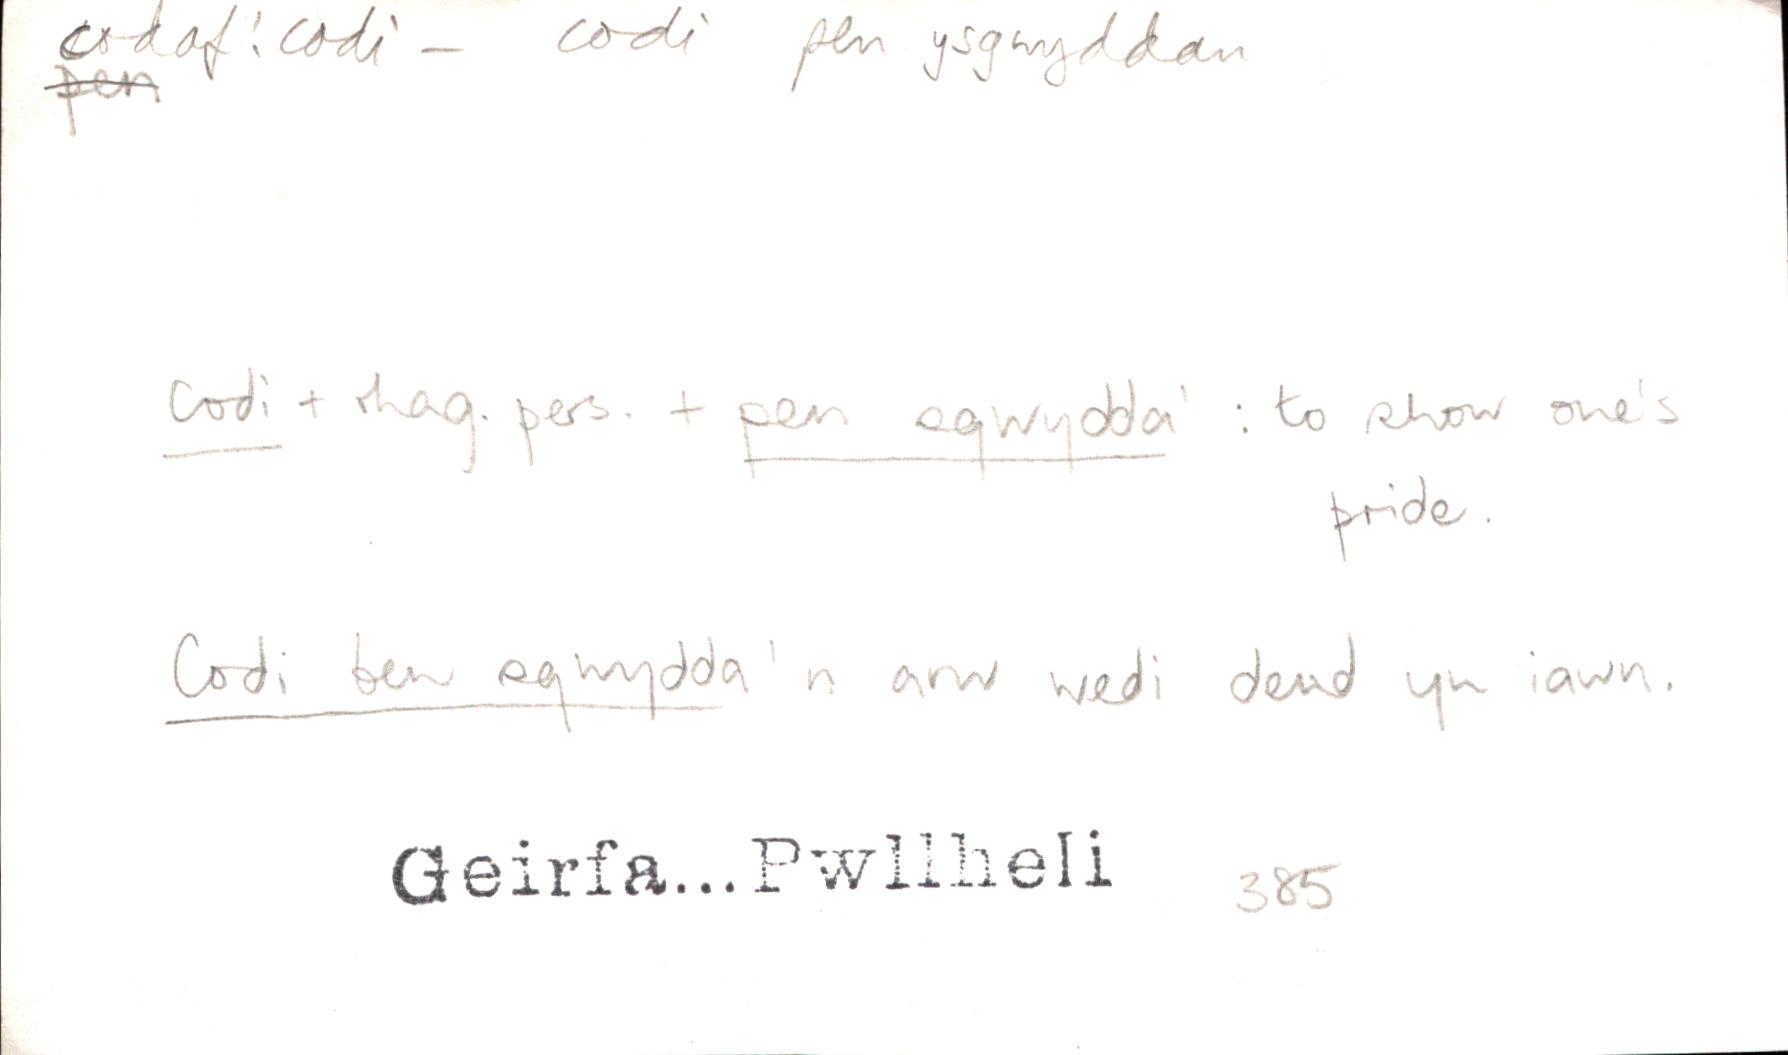 codaf: codi – codi pen ysgwyddau
pen
Codi + rhag. pers. + pen sgwydda' : to show one's
pride.
Codi ben sgwydda'n arw wedi deud yn iawn.
Geirfa...Pwllheli 385